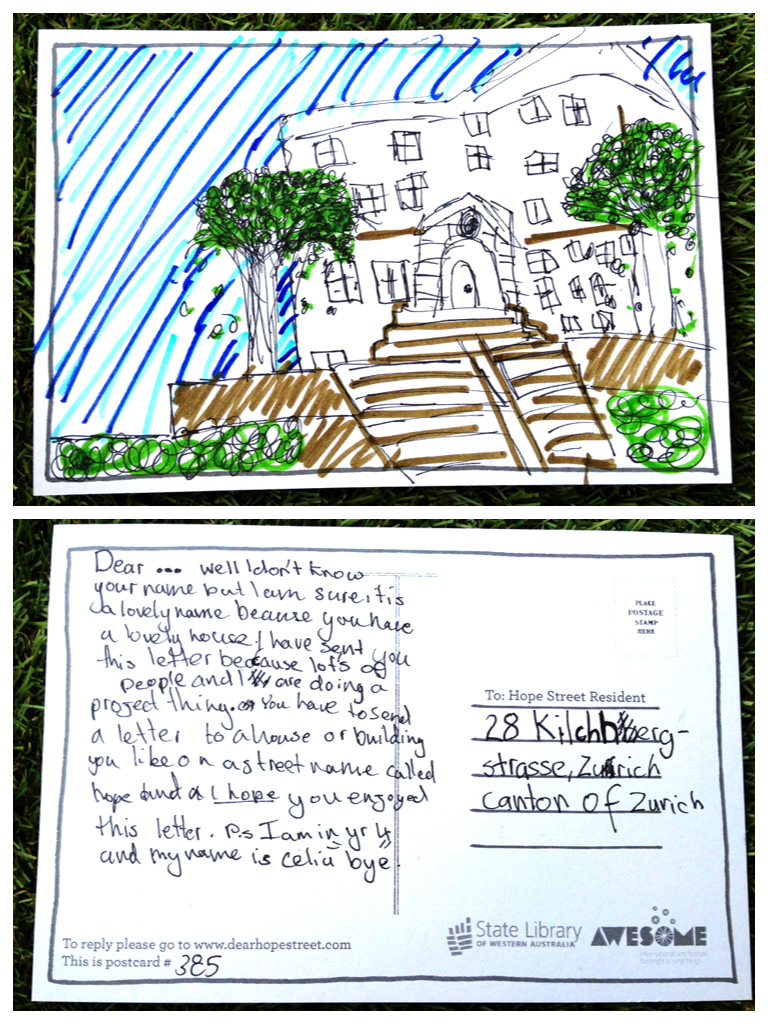 Dear ... well I don't know
your name but I am sure it is
a lovely name because you have
a lovely house. I have sent you
this letter because lots of
people and I are doing a
project thing. You have to send
a letter to a house or building
you like on a street name called
hope and I hope you enjoyed
this letter. P.s I am in yr 4
and my name is celia bye.
To reply please go to www.dearhopestreet.com
This is postcard # 385
PLACE
POSTAGE
STAMP
HERE
To: Hope Street Resident
28 Kilchberg-
strasse, Zurich
canton of Zurich
State Library
OF WESTERN AUSTRALIA
AWESOME